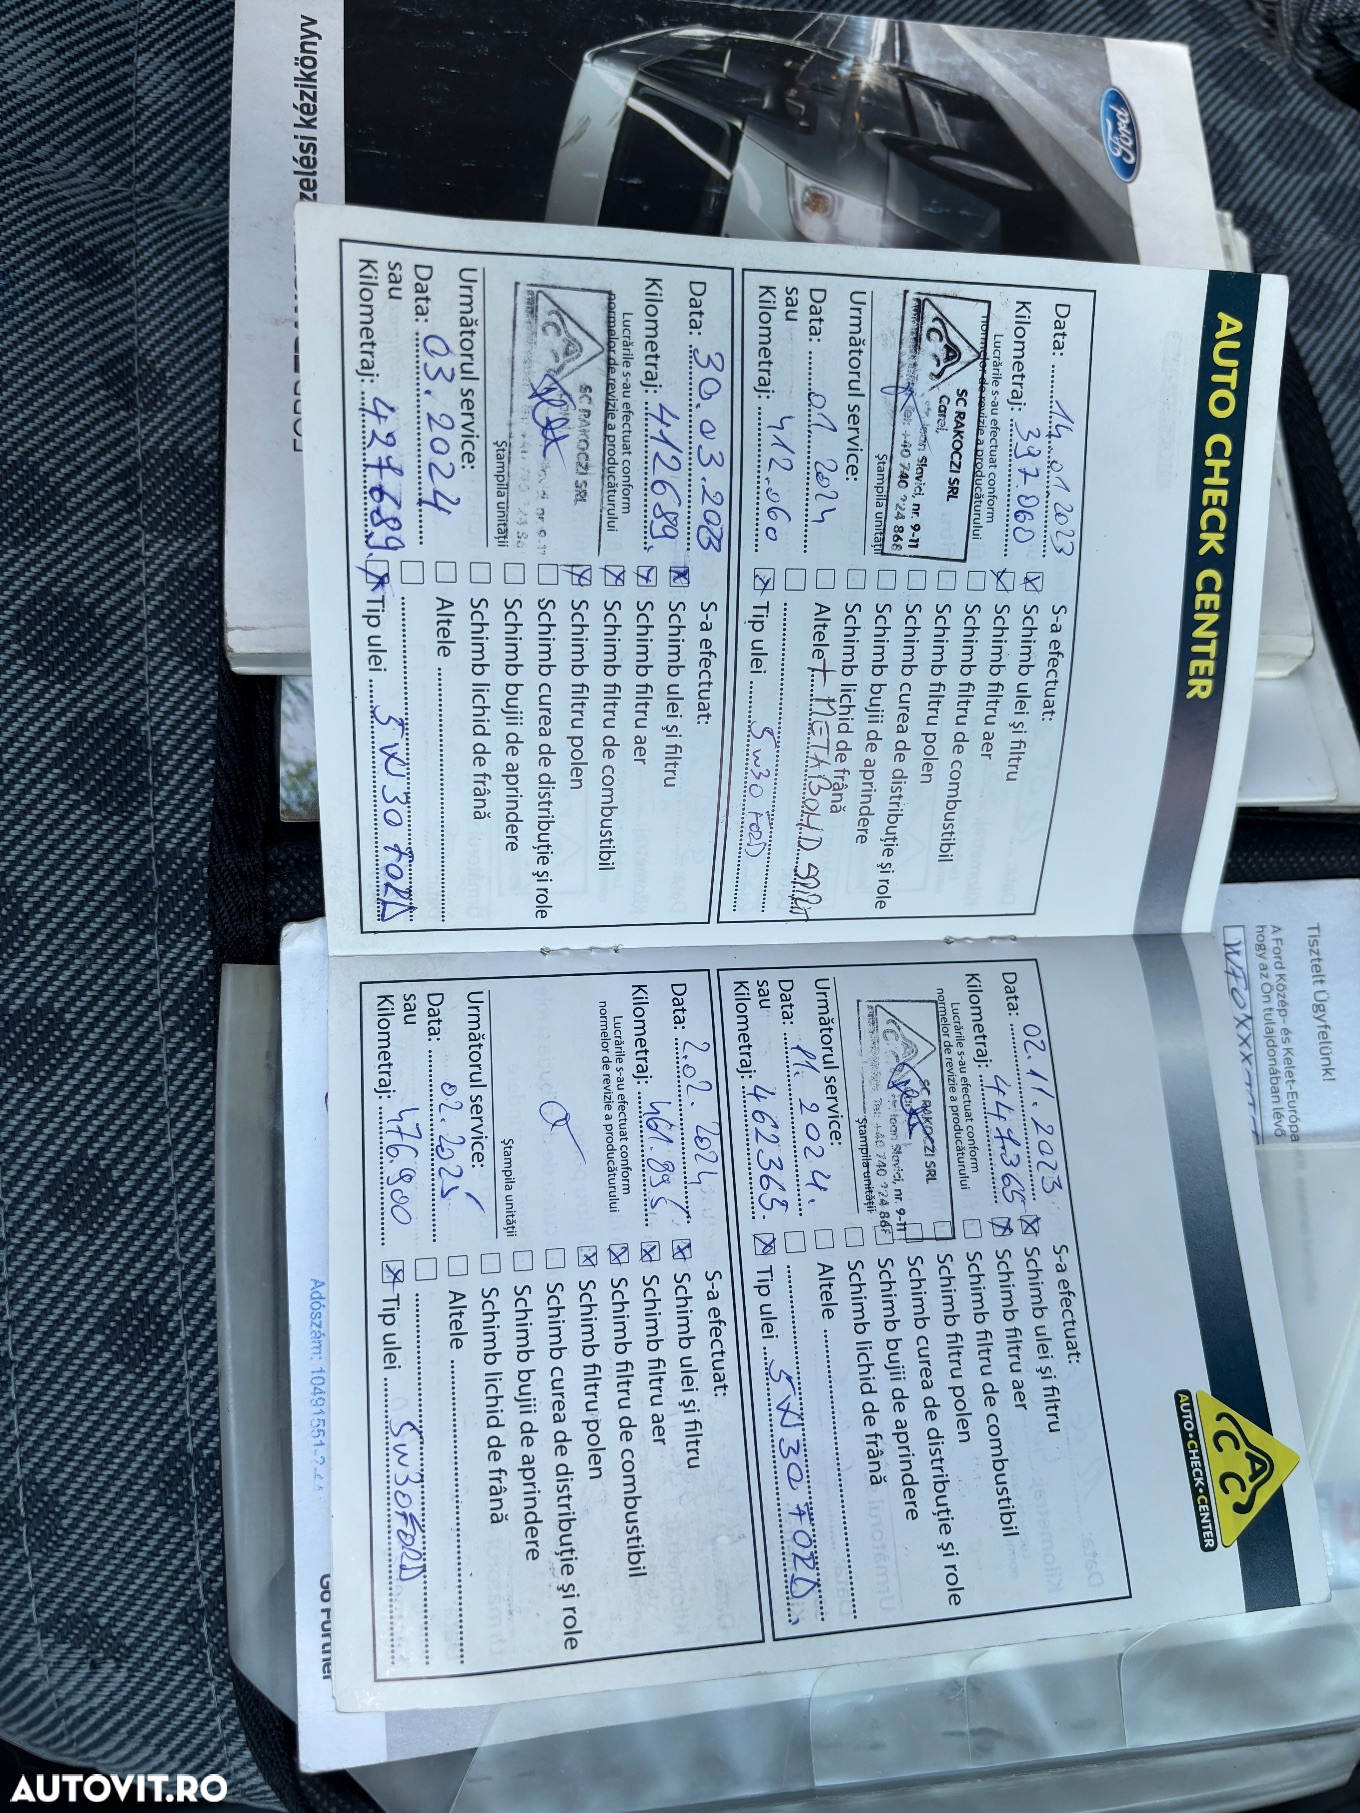 zelési kézikönyv
Ford
AUTO CHECK CENTER
Data: 14.01.2023
Kilometraj: 397.060
Lucrările s-au efectuat conform
normelor de revizie a producăturului
SC RAKOCZI SRL
Carei,
Ioan Slavici, nr. 9-11
Tel: +40 740 224 868
Ștampila unității
Următorul service:
Data: 01.2024
sau
Kilometraj: 412.060
S-a efectuat:
Schimb ulei și filtru
Schimb filtru aer
Schimb filtru de combustibil
Schimb filtru polen
Schimb curea de distribuție și role
Schimb bujii de aprindere
Schimb lichid de frână
Altele
Tip ulei 5W30 FORD
Data: 30.03.2023
Kilometraj: 412689
Lucrările s-au efectuat conform
normelor de revizie a producăturului
SC RAKOCZI SRL
nr. 9-11
Ștampila unității
Următorul service:
Data: 03.2024
sau
Kilometraj: 427689
S-a efectuat:
Schimb ulei și filtru
Schimb filtru aer
Schimb filtru de combustibil
Schimb filtru polen
Schimb curea de distribuție și role
Schimb bujii de aprindere
Schimb lichid de frână
Altele
Tip ulei 5W30 FORD
Data: 02.11.2023
Kilometraj: 447365
Lucrările s-au efectuat conform
normelor de revizie a producăturului
SC RAKOCZI SRL
Ioan Slavici, nr. 9-11
Tel: +40 740 224 868
Ștampila unității
Următorul service:
Data: 11.2024.
sau
Kilometraj: 462365.
S-a efectuat:
Schimb ulei și filtru
Schimb filtru aer
Schimb filtru de combustibil
Schimb filtru polen
Schimb curea de distribuție și role
Schimb bujii de aprindere
Schimb lichid de frână
Altele
Tip ulei 5W30 FORD
Data: 2.02.2024
Kilometraj: 461.895
Lucrările s-au efectuat conform
normelor de revizie a producăturului
Ștampila unității
Următorul service:
Data: 02.2025
sau
Kilometraj: 476.900
S-a efectuat:
Schimb ulei și filtru
Schimb filtru aer
Schimb filtru de combustibil
Schimb filtru polen
Schimb curea de distribuție și role
Schimb bujii de aprindere
Schimb lichid de frână
Altele
Tip ulei 5W30 FORD
ACC
AUTO•CHECK•CENTER
Tisztelt Ügyfelünk!
A Ford Közép- és Kelet-Európa
hogy az Ön tulajdonában lévő
WF0XXX
Adószám: 10491551-2-44
Go Further
AUTOVIT.RO